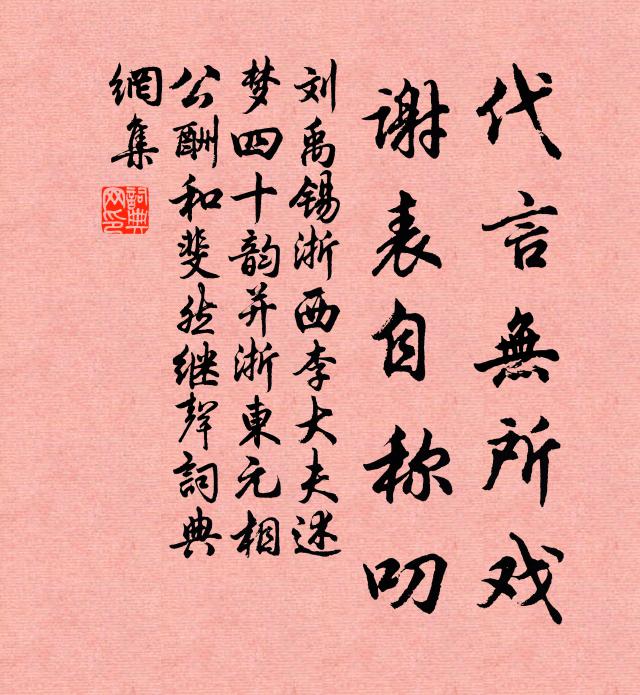 代言無所戏
谢表自称叨
刘禹锡浙西李大夫述
梦四十韵并浙東元相
公酬和斐然继聲詞典
網集
詞典
网印